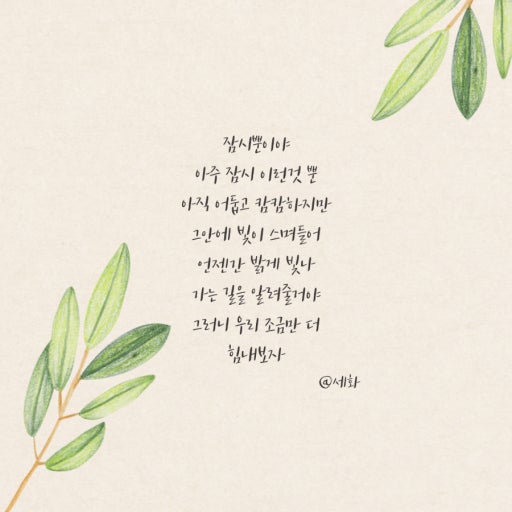 잠시뿐이야
아주 잠시 이런것 뿐
아직 어둡고 캄캄하지만
그안에 빛이 스며들어
언젠간 밝게 빛나
가는 길을 알려줄거야
그러니 우리 조금만 더
힘내보자
@세화